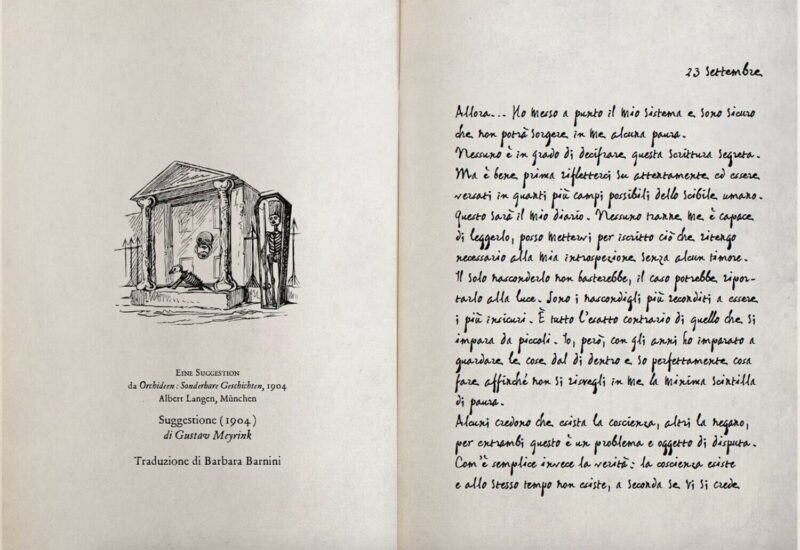 Eine Suggestion
da Orchideen: Sonderbare Geschichten, 1904
Albert Langen, München
Suggestione (1904)
di Gustav Meyrink
Traduzione di Barbara Barnini
23 Settembre
Allora... Ho messo a punto il mio sistema e sono sicuro
che non potrà sorgere in me alcuna paura.
Nessuno è in grado di decifrare questa scrittura segreta.
Ma è bene prima rifletterci su attentamente ed essere
versati in quanti più campi possibili dello scibile umano.
Questo sarà il mio diario. Nessuno tranne me è capace
di leggerlo, posso mettervi per iscritto ciò che ritengo
necessario alla mia introspezione senza alcun timore.
Il solo nasconderlo non basterebbe, il caso potrebbe ripor-
tarlo alla luce. Sono i nascondigli più reconditi a essere
i più insicuri. È tutto l'esatto contrario di quello che si
impara da piccoli. Io, però, con gli anni ho imparato a
guardare le cose dal di dentro e so perfettamente cosa
fare affinché non si risvegli in me la minima scintilla
di paura.
Alcuni credono che esista la coscienza, altri la negano,
per entrambi questo è un problema e oggetto di disputa.
Com'è semplice invece la verità: la coscienza esiste
e allo stesso tempo non esiste, a seconda se vi si crede